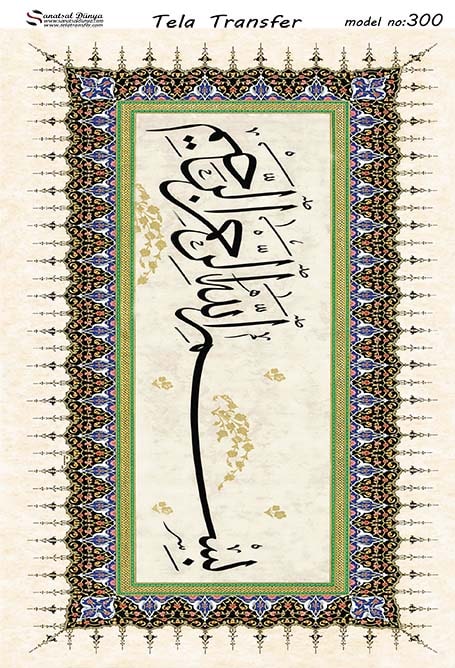 Sanatsal Dünya
www.sanatsaldunya.com
www.telatransfer.com
Tela Transfer
model no:300
بسم الله الرحمن الرحيم